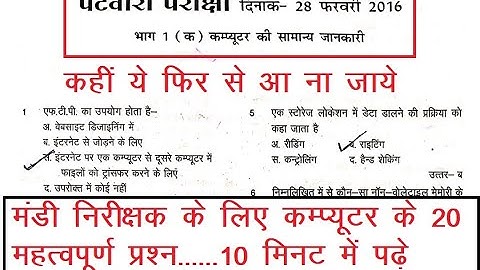 पटवारी परीक्षा दिनांक- 28 फरवरी 2016
भाग 1 (क) कम्प्यूटर की सामान्य जानकारी
कहीं ये फिर से आ ना जाये
1 एफ.टी.पी. का उपयोग होता है-
अ. वेबसाइट डिजाइनिंग में
ब. इंटरनेट से जोड़ने के लिए
स. इंटरनेट पर एक कम्प्यूटर से दूसरे कम्प्यूटर में
फाइलों को ट्रांसफर करने के लिएं
द. उपरोक्त में कोई नहीं
5 एक स्टोरेज लोकेशन में डेटा डालने की प्रक्रिया को
कहा जाता है
अ. रीडिंग ब. राइटिंग
स. कन्ट्रोलिंग द. हैन्ड शेकिंग
उत्तर- ब
6 निम्नलिखित में से कौन-सा नॉन-वोलेटाइल मेमोरी के
मंडी निरीक्षक के लिए कम्प्यूटर के 20
महत्वपूर्ण प्रश्न......10 मिनट में पढ़े